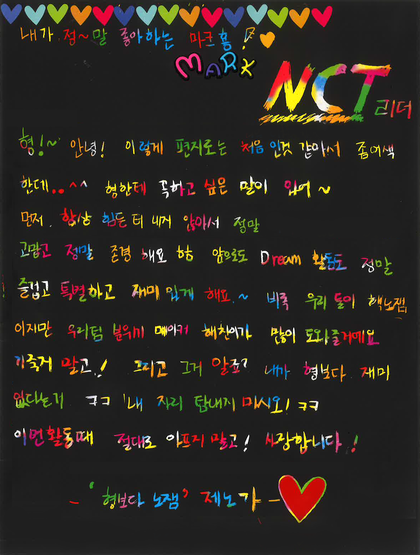 내가 정~말 좋아하는 마크형!
MARK
NCT 리더
형!~ 안녕! 이렇게 편지로는 처음인것 같아서 좀어색
한데..^^ 형한테 꼭하고 싶은 말이 있어~
먼저, 항상 힘든 티 내지 않아서 정말
고맙고 정말 존경해요 형 앞으로도 Dream 활동도 정말
즐겁고 특별하고 재미있게 해요.~ 비록 우리 둘이 핵노잼
이지만 우리팀 분위기 메이커 해찬이가 많이 도와줄거예요
기죽지 말고,! 그리고 그거 알죠? 내가 형보다 재미
없다는거 ㅋㅋ '내 자리 탐내지 마시오! ㅋㅋ
이번활동때 절대로 아프지 말고! 사랑합니다!
- '형보다 노잼' 제노가 -